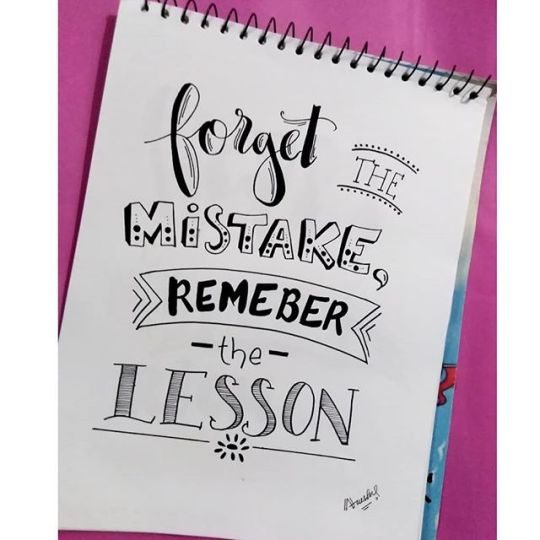 forget THE
MiSTAKE,
REMEBER
-the-
LESSON